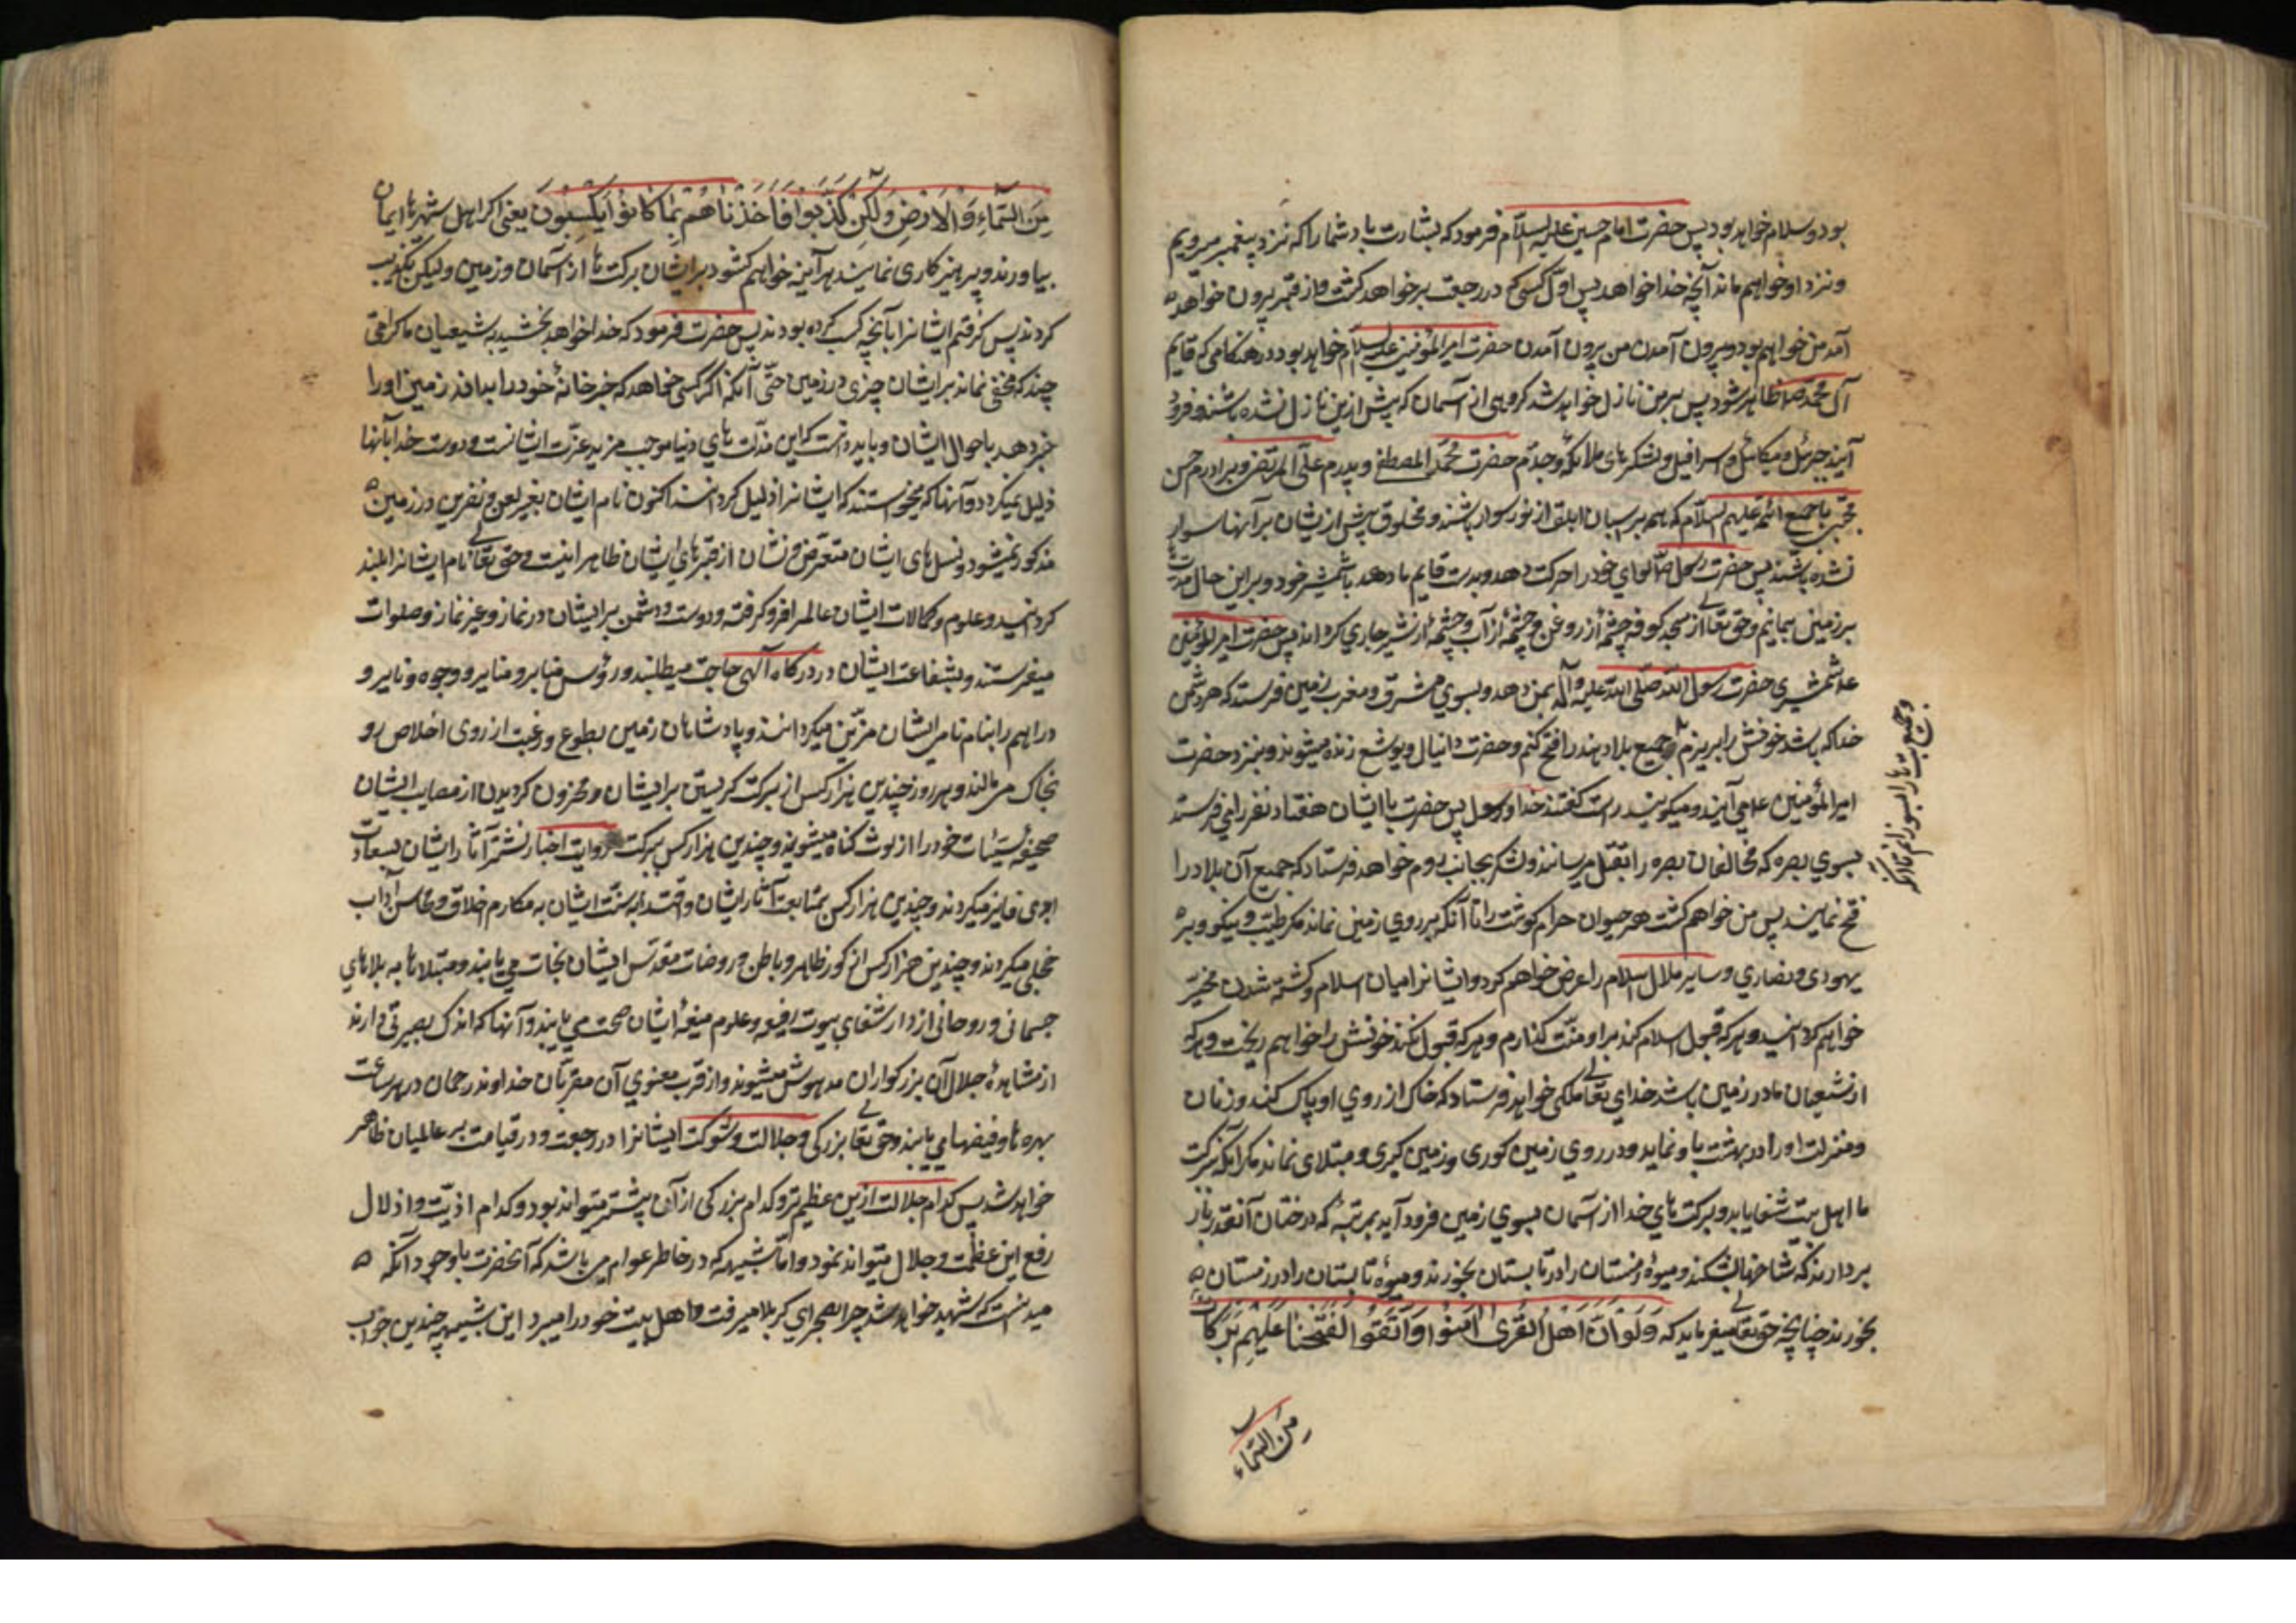 بود و سلام خواهد بود پس حضرت امام حسین علیه السلام فرمود که بشارت باد شما را که نزد پیغمبر میرویم
و نزد او خواهیم ماند آنچه خدا خواهد پس اول کسی که در رجعت بر خواهد گشت و از قبر بیرون خواهد
آمد من خواهم بود و بیرون آمدن من بیرون آمدن حضرت امیر المؤمنین علیه السلام خواهد بود در هنگامی که قایم
آل محمد ص ظاهر شود پس بر من نازل خواهد شد گروهی از آسمان که پیش ازین نازل نشده باشند و فرود
آیند جبرئیل و میکائیل و اسرافیل و لشکرهای ملائکه و جدم حضرت محمد المصطفی و پدرم علی المرتضی و برادرم حسن
مجتبی با جمیع ائمه علیهم السلام که همه بر اسبان ابلق از نور سوار باشند و مخلوق پیش از ایشان بر آنها سوار
نشده باشند پس حضرت رسول ص لوای خود را حرکت دهد و بدست قایم ما دهد با شمشیر خود و بر این حال مدت
بر زمین بمانیم و حق تعالی از مسجد کوفه چشمهٔ از روغن و چشمهٔ از آب و چشمهٔ از شیر جاری گرداند پس حضرت امیر المؤمنین
ع شمشیر حضرت رسول الله صلی الله علیه و آله بمن دهد و بسوی مشرق و مغرب زمین فرستد که هر دشمن
خدا که باشد خونش را بریزم و جمیع بلاد هند را فتح کنم و حضرت دانیال و یوشع زنده میشوند و بنزد حضرت
امیر المؤمنین ع می آیند و میگویند راست گفتند خدا و رسول پس حضرت با ایشان هفتاد نفر را می فرستد
بسوی بصره که مخالفان بصره را بقتل میرسانند و لشکر بجانب روم خواهد فرستاد که جمیع آن بلاد را
فتح نمایند پس من خواهم کشت هر حیوان حرام گوشت را تا آنکه بر روی زمین نماند مگر طیب و نیکو و بر
یهودی و نصاری و سایر ملل اسلام را عرض خواهم کرد و ایشانرا میان اسلام و کشته شدن مخیر
خواهم گردانید و هر که قبول اسلام کند بر او منت گذارم و هر که قبول نکند خونش را خواهم ریخت و هر که
از شیعیان ما در زمین باشد خدای تعالی ملکی خواهد فرستاد که خاک از روی او پاک کند و زنان
و منزلت او را در بهشت باو نماید و در روی زمین کوری و زمین گیری و مبتلای نماند مگر آنکه ببرکت
ما اهل بیت شفا یابد و برکت های خدا از آسمان بسوی زمین فرود آید بمرتبه که درختان آنقدر بار
بردارند که شاخها بشکند و میوهٔ زمستان را در تابستان بخورند و میوهٔ تابستان را در زمستان
بخورند چنانچه حق تعالی میفرماید که وَلَوْ أَنَّ أَهْلَ الْقُرَى آمَنُوا وَاتَّقَوْا لَفَتَحْنَا عَلَيْهِم بَرَكَاتٍ
مِنَ السَّمَاءِ
مِنَ السَّمَاءِ وَالْأَرْضِ وَلَكِنْ كَذَّبُوا فَأَخَذْنَاهُمْ بِمَا كَانُوا يَكْسِبُونَ یعنی اگر اهل شهرها ایمان
بیاورند و پرهیزکاری نمایند هر آینه خواهم گشود بر ایشان برکت ها از آسمان و زمین و لیکن تکذیب
کردند پس گرفتم ایشانرا بآنچه کسب کرده بودند پس حضرت فرمود که خدا خواهد بخشید به شیعیان ما کرامتی
چند که مخفی نماند بر ایشان چیزی در زمین حتی آنکه اگر کسی خواهد که خبر خانهٔ خود را بداند زمین او را
خبر دهد باحوال ایشان و باید دانست که این مذلت های دنیا موجب مزید عزت ایشانست و دوست خدا بآنها
ذلیل نمیگردد و آنها که میخواستند که ایشانرا ذلیل گردانند اکنون نام ایشان بغیر لعن و نفرین در زمین
مذکور نمیشود و نسل های ایشان منقرض و نشان از قبرهای ایشان ظاهرا نیست و حق تعالی نام ایشانرا بلند
گردانید و علوم و کمالات ایشان عالم را فرو گرفته و دوست و دشمن بر ایشان در نماز و غیر نماز و صلوات
میفرستند و بشفاعت ایشان در درگاه الهی حاجت میطلبند و رؤس منابر و منایر و وجوه دنایر و
دراهم را بنام نامی ایشان مزین میگردانند و پادشاهان زمین بطوع و رغبت از روی اخلاص رو
بخاک می مالند و هر روز چندین هزار کس از برکت گریستن بر ایشان و محزون گردیدن از مصایب ایشان
صحیفه سیئات خود را از لوث گناه میشویند و چندین هزار کس ببرکت روایت اخبار و نشر آثار ایشان بسعادت
ابدی فایز میگردند و چندین هزار کس بمتابعت آثار ایشان و اقتدا بسنت ایشان به مکارم اخلاق و محاسن آداب
محلی میگردند و چندین هزار کس از کور ظاهر و باطن در روضات مقدس ایشان نجات می یابند و مبتلاها به بلاهای
جسمانی و روحانی از دار شفای بیوت رفیعه و علوم منیعهٔ ایشان صحت می یابند و آنها که اندک بصیرتی دارند
از مشاهدهٔ جلال آن بزرگواران مدهوش میشوند و از قرب معنوی آن مقربان خداوند رحمان در هر ساعت
بهره ها و فیضها می یابند و حق تعالی بزرگی و جلالت و شوکت ایشانرا در رجعت و در قیامت بر عالمیان ظاهر
خواهد شد پس کدام جلالت ازین عظیم تر و کدام بزرگی از آن بیشتر میتواند بود و کدام اذیت و اذلال
رفع این عظمت و جلال میتواند نمود و اما شبیهه که در خاطر عوام می باشد که آنحضرت باوجود آنکه
میدانست که شهید خواهد شد چرا بصحرای کربلا میرفت و اهل بیت خود را میبرد این شبیهه چندین جواب